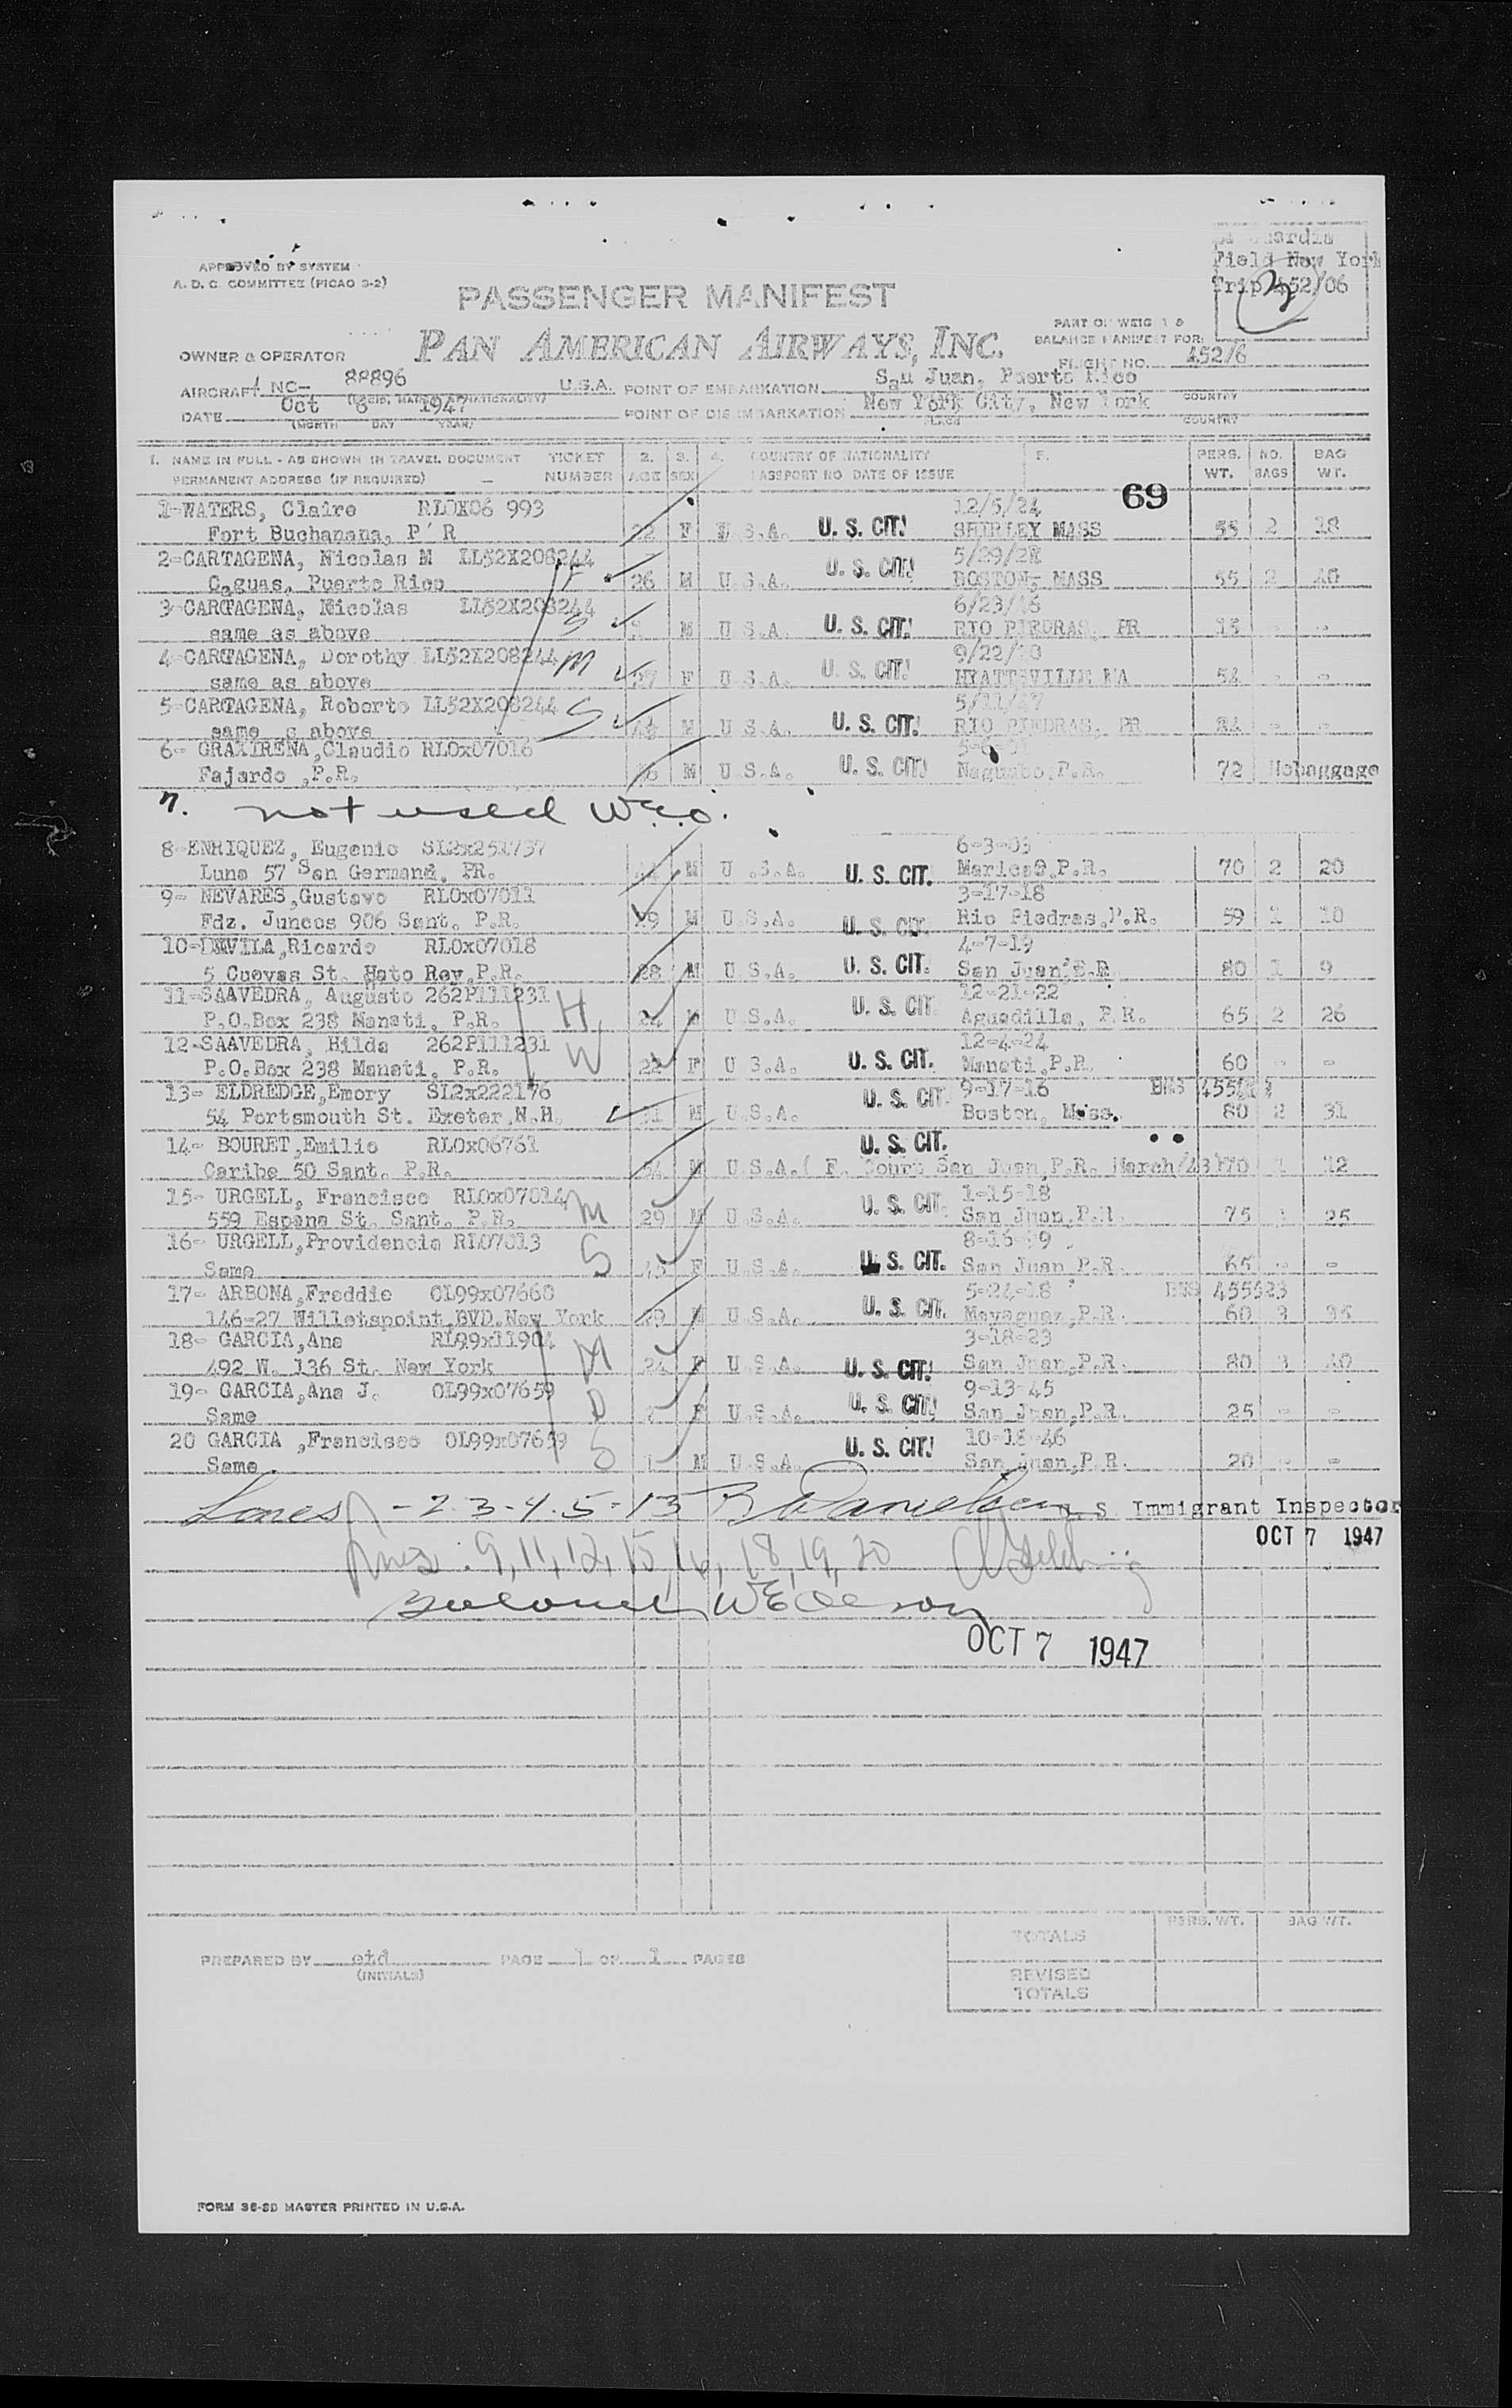 La Guardia
Field New York
Trip 452/06
APPROVED BY SYSTEM
A. D. C. COMMITTEE (PICAO 3-2)
PASSENGER MANIFEST
PART OF WEIGHT &
BALANCE MANIFEST FOR:
PAN AMERICAN AIRWAYS, INC.
OWNER & OPERATOR
FLIGHT NO. 452/6
AIRCRAFT NC- 88896 U.S.A. POINT OF EMBARKATION San Juan, Puerto Rico
COUNTRY
DATE Oct 6 1947 POINT OF DISEMBARKATION New York City, New York
(MONTH DAY YEAR) PLACE COUNTRY
1. NAME IN FULL - AS SHOWN IN TRAVEL DOCUMENT TICKET 2. 3. 4. COUNTRY OF NATIONALITY 5. PERS. NO. BAG
PERMANENT ADDRESS (IF REQUIRED) NUMBER AGE SEX PASSPORT NO DATE OF ISSUE WT. BAGS WT.
69
1-WATERS, Claire RLOX06 993 12/5/24
Fort Buchanana, P'R 22 F U.S.A. U. S. CIT. SHIRLEY MASS 55 2 18
2-CARTAGENA, Nicolas M LL52X208244 F 5/29/
Caguas, Puerto Rico 26 M U.S.A. U. S. CIT. BOSTON, MASS 55 2 40
3-CARTAGENA, Nicolas LL52X208244 S 6/23/
same as above M U.S.A. U. S. CIT. RIO PIEDRAS, PR
4-CARTAGENA, Dorothy LL52X208244 M 9/22/
same as above F U.S.A. U. S. CIT. HYATTSVILLE 54 -
5-CARTAGENA, Roberto LL52X208244 S 5/11/47
same as above M U.S.A. U. S. CIT. RIO PIEDRAS, PR 24 -
6- GRAXIRENA,Claudio RLOx07016
Fajardo ,P.R. M U.S.A. U. S. CIT. Naguabo,P.R. 72 Nobaggage
7. not used WEO.
8-ENRIQUEZ, Eugenio SL2x251737 6-3-03
Luna 57 San Germand, PR. 44 M U.S.A. U. S. CIT. Maricao,P.R. 70 2 20
9- NEVARES,Gustavo RLOx07011 3-17-18
Fdz. Juncos 906 Sant. P.R. 29 M U.S.A. U. S. CIT. Rio Piedras,P.R. 59 1 10
10-DAVILA,Ricardo RLOx07018 4-7-19
5 Cuevas St. Hato Rey,P.R. 28 M U.S.A. U. S. CIT. San Juan,P.R. 80 1 9
11-SAAVEDRA, Augusto 262P111231 H 12-21-22
P.O.Box 238 Manati, P.R. 24 M U.S.A. U. S. CIT. Aguadilla, P.R. 65 2 26
12-SAAVEDRA, Hilda 262P111231 W 12-4-24
P.O.Box 238 Manati, P.R. 22 F U.S.A. U. S. CIT. Manati,P.R. 60 - -
13- ELDREDGE,Emory SL2x222176 9-17-16
54 Portsmouth St. Exeter,N.H. 31 M U.S.A. U. S. CIT. Boston, Mass. 80 2 31
14- BOURET,Emilio RLOx06761 U. S. CIT.
Caribe 50 Sant. P.R. 54 M U.S.A.( F. Court San Juan,P.R. March/43)70 1 12
15- URGELL, Francisco RLOx07014 M 1-15-18
559 Espana St. Sant. P.R. 29 M U.S.A. U. S. CIT. San Juan,P.R. 75 25
16- URGELL,Providencia RL07013 S 8-16-
Same F U.S.A. U. S. CIT. San Juan P.R. 65 - -
17- ARBONA,Freddie OL99x07660 5-24-18 455523
146-27 Willetspoint,BVD.New York 29 M U.S.A. U. S. CIT. Mayaguez,P.R. 60 3
18- GARCIA,Ana RL99x11904 M 3-18-23
492 W. 136 St. New York 24 F U.S.A. U. S. CIT. San Juan,P.R. 80 3 40
19- GARCIA,Ana J. OL99x07659 D 9-13-45
Same F U.S.A. U. S. CIT. San Juan,P.R. 25 - -
20 GARCIA ,Francisco OL99x07659 S 10-18-46
Same M U.S.A. U. S. CIT. San Juan,P.R. 20 - -
Lines - 2-3-4-5-13 U. S. Immigrant Inspector
OCT 7 1947
Lines 9, 11, 12, 15, 16, 18, 19, 20
Balance WE Olerson
OCT 7 1947
TOTALS PERS. WT. BAG WT.
PREPARED BY etd PAGE 1 OF 1 PAGES
(INITIALS)
REVISED
TOTALS
FORM 36-SD MASTER PRINTED IN U.S.A.